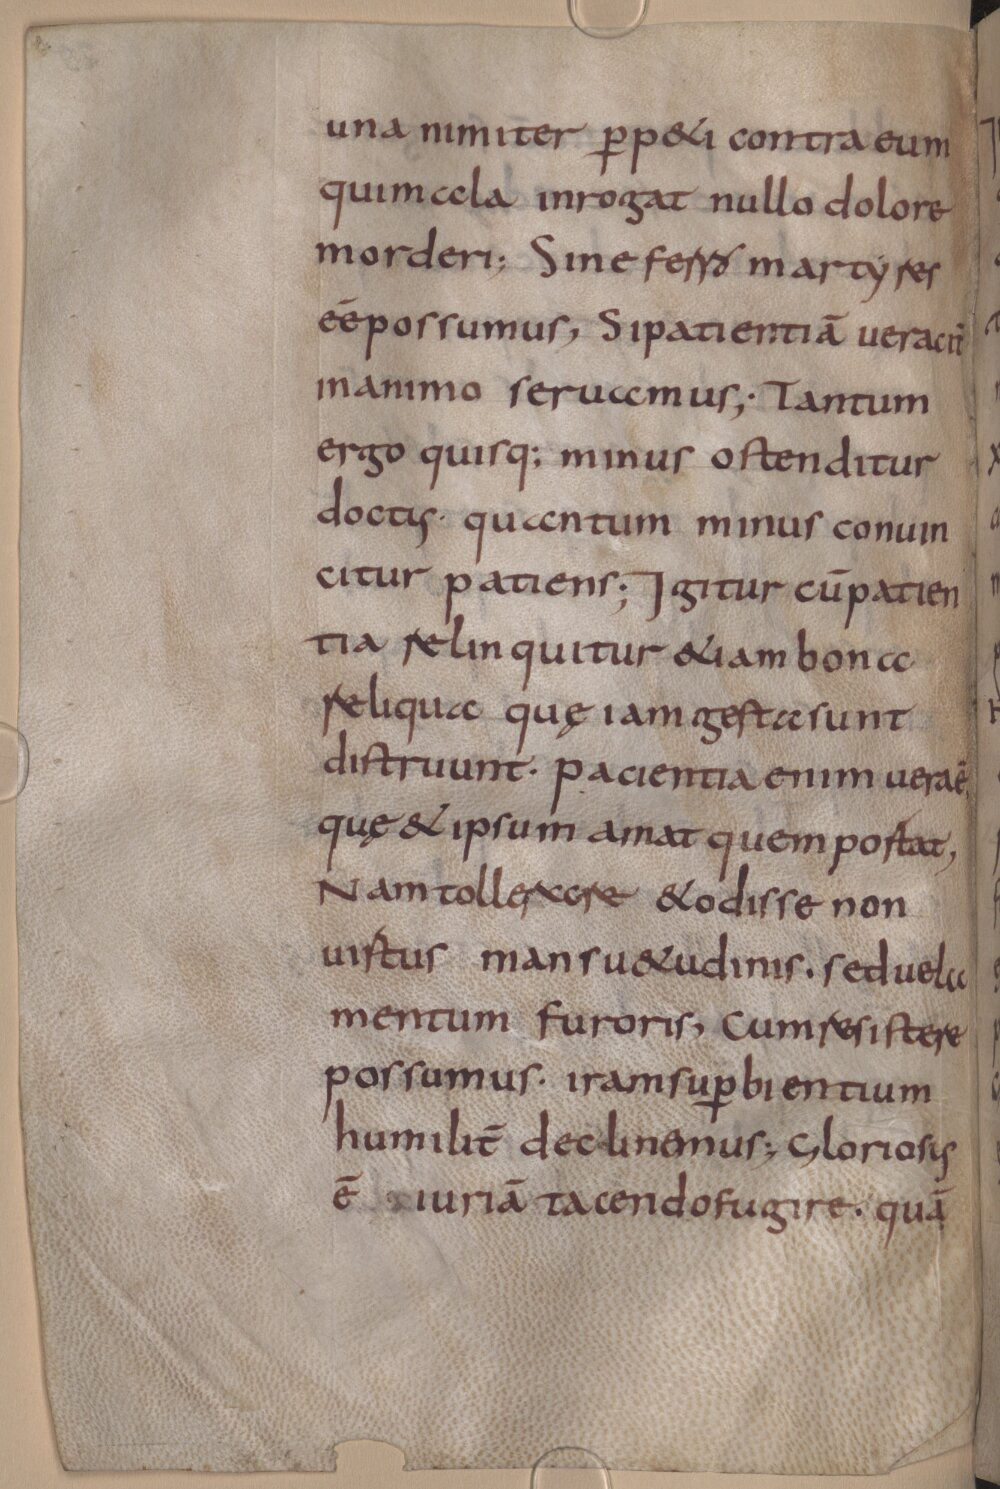 una nimiter p̲p&i contra eum
quimala inrogat nullo dolore
morderi; Sine ferro martyres
eē possumus, Sipatientiā veracit̄
inanimo seruamus; Tantum
ergo quisq; minus ostenditur
doctis· quantum minus conuin
citur patiens; Igitur cūpatien
tia relinquitur &iam bona
reliqua quę iam gesta sunt
distruunt. pacientia enim vera ē,
quę & ipsum amat quem portat,
Nam tollerare &odisse non
uirtus mansu&udinis. sed uela
mentum furoris, Cum resistere
possumus· iram sup̲bientium
humilit̄ declinemus; Gloriosis
ē iuriā tacendo fugire. quā